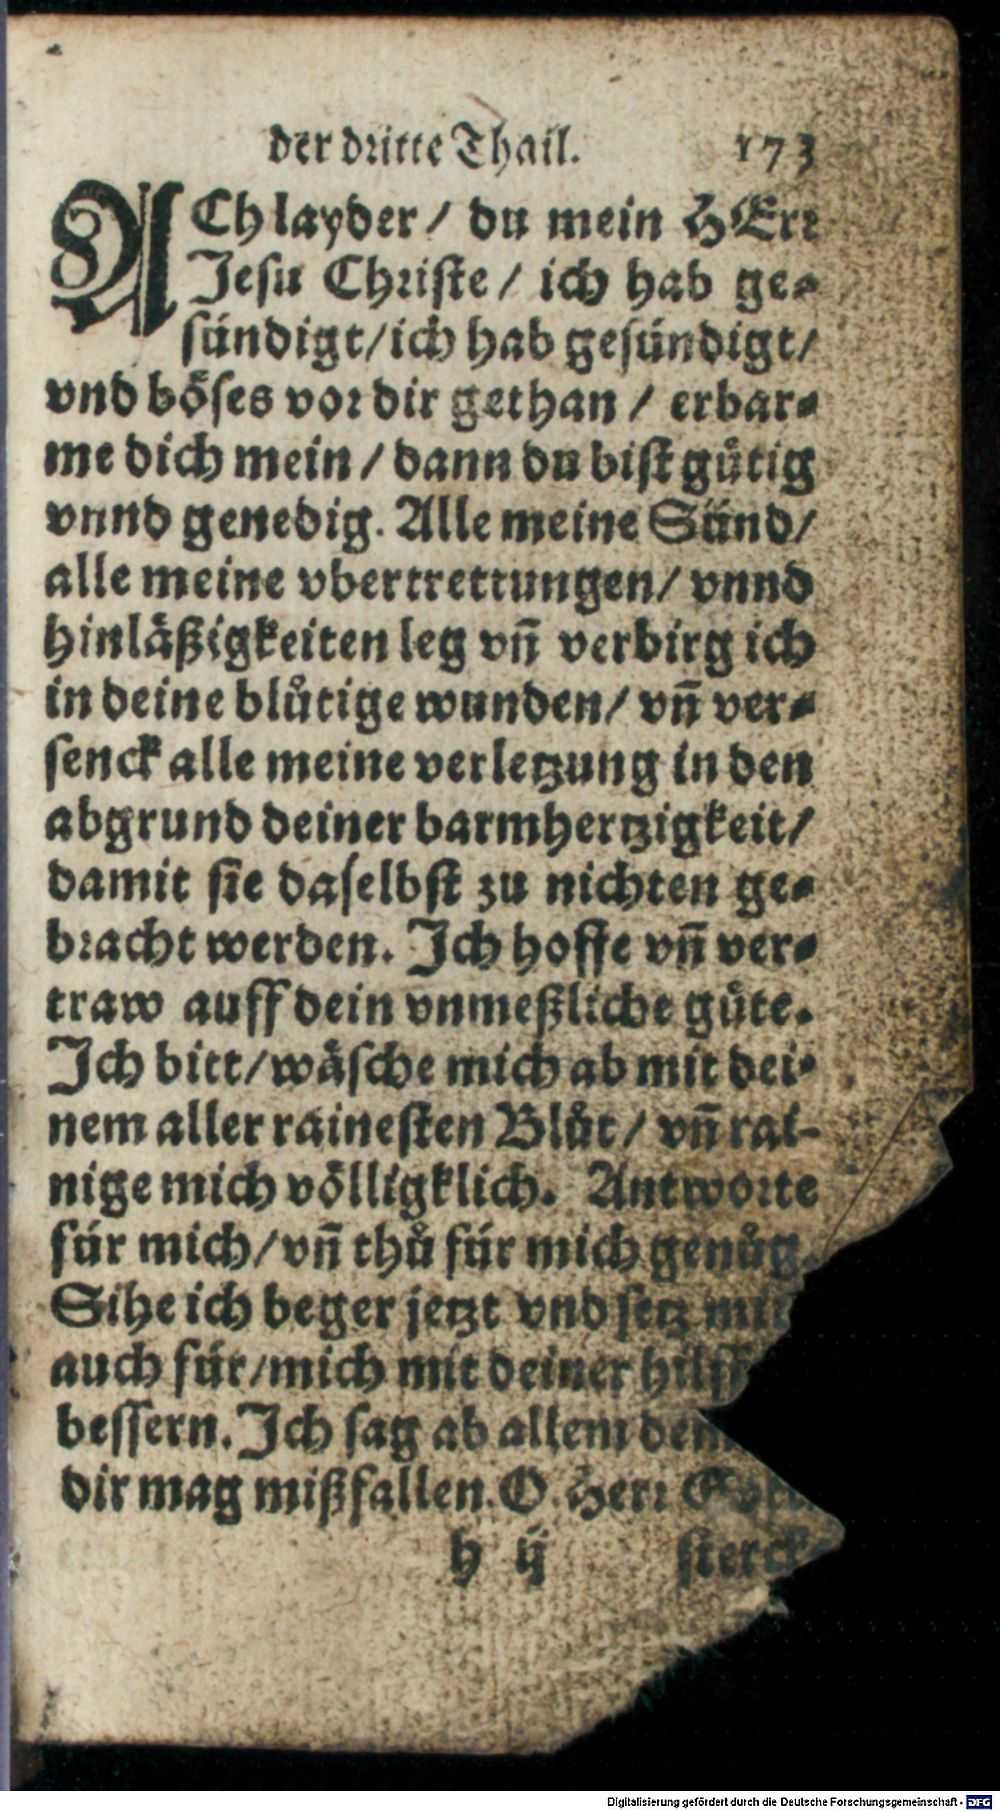 der dritte Thail. 173
ACh layder / du mein HErr
Jesu Christe / ich hab ge⸗
sündigt/ich hab gesündigt/
vnd böses vor dir gethan / erbar⸗
me dich mein / dann du bist gůtig
vnnd genedig. Alle meine Sünd/
alle meine vbertrettungen/ vnnd
hinläßigkeiten leg vñ verbirg ich
in deine blůtige wunden/ vñ ver⸗
senck alle meine verletzung in den
abgrund deiner barmhertzigkeit/
damit sie daselbst zu nichten ge⸗
bracht werden. Ich hoffe vñ ver⸗
traw auff dein vnmeßliche gůte.
Ich bitt/wäsche mich ab mit dei⸗
nem aller rainesten Blůt / vñ rai-
nige mich völligklich. Antworte
für mich/vñ thů für mich genůg.
Sihe ich beger jetzt vnd setz mir
auch für/mich mit deiner
bessern. Ich sag ab allem
dir mag mißfallen. O Herr
h ij sterck
Digitalisierung gefördert durch die Deutsche Forschungsgemeinschaft - DFG